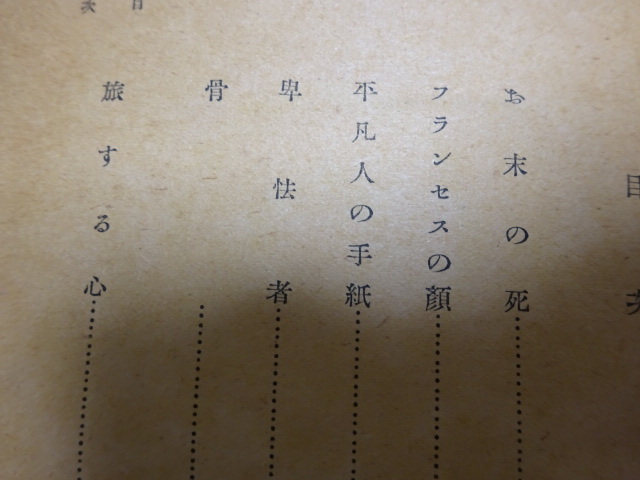 目次
お末の死
フランセスの顔
平凡人の手紙
卑怯者
骨
旅する心
目次